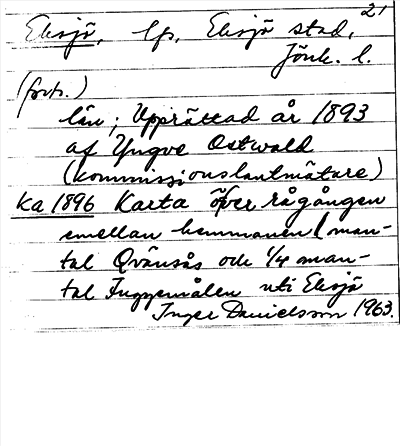 21
Eksjö, lfs, Eksjö stad,
Jönk. l.
(forts.)
län; Upprättad år 1893
af Yngve Ostwald
(kommissionslantmätare)
Ka 1896 Karta öfver rågången
emellan hemmanen 1 man-
tal Qvänsås och 1/4 man-
tal Fuggemålen uti Eksjö
Inger Danielsson 1963.